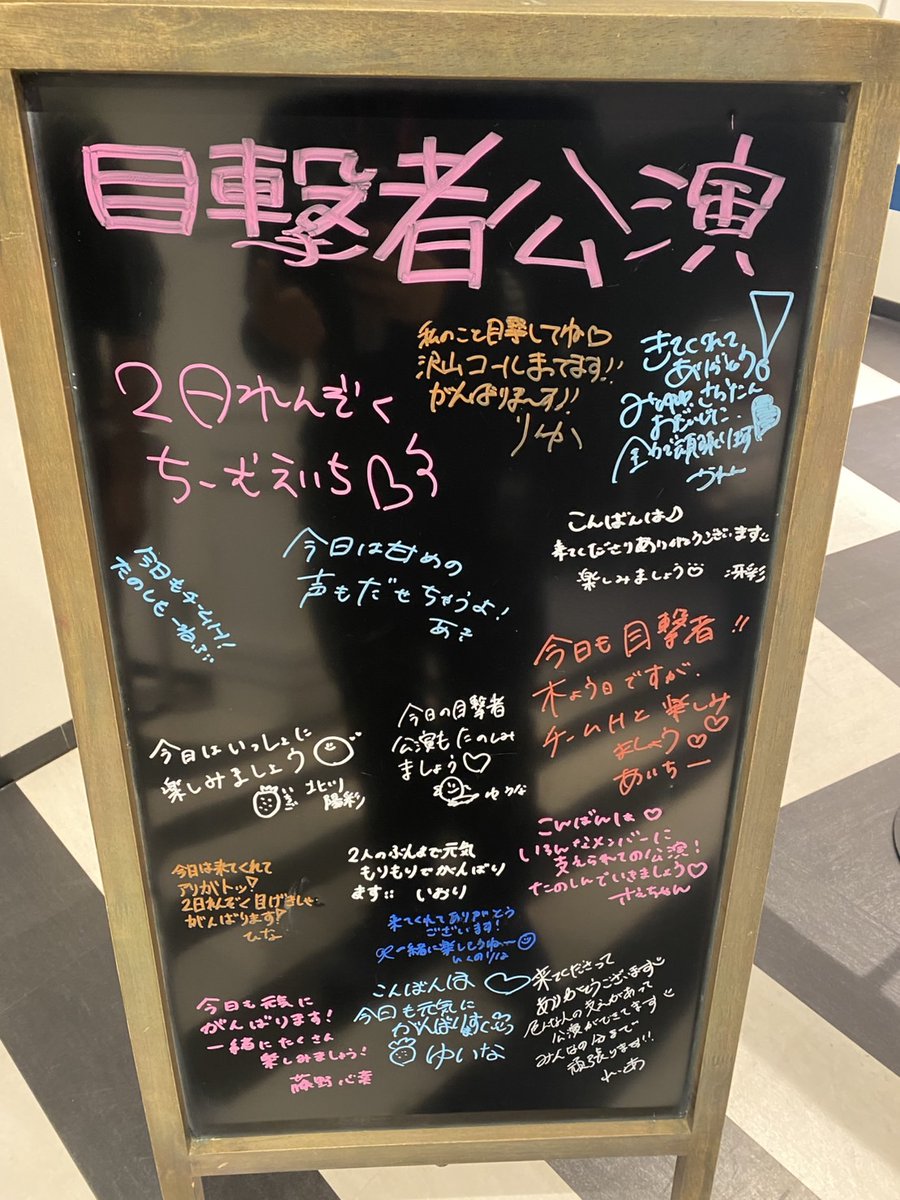 目撃者公演
2日れんぞく
ちーむえいち
私のこと目撃してね♡
沢山コールまってます!!
がんばりまーす!!
りゆか
きてくれて
ありがとう!
おだいじに
全力で頑張ります
今日は甘めの
声もだせちゃうよ!
あき
こんばんは♪
来てくださりありがとうございます
楽しみましょう 冴彩
今日もチームH!
今日も目撃者!!
木よう日ですが、
チームHと楽しみ
ましょう♡♡
あいちー
今日はいっしょに
楽しみましょう
北川
陽彩
今日の目撃者
公演もたのしみ
ましょう♡
ゆうな
こんばんは♡
いろんなメンバーに
支えられての公演!
たのしんでいきましょう♡
さえちゃん
今日は来てくれて
アリガトッ♡
2日れんぞく目げきしゃ
がんばります
ひな
2人のぶんまで元気
もりもりでがんばり
ます いおり
来てくれてありがとう
ございます!
一緒に楽しもうねー
こんばんは♡
今日も元気に
がんばりますっ
ゆいな
今日も元気に
がんばります!
一緒にたくさん
楽しみましょう!
藤野心葉
来てくださって
ありがとうございます
色んな人の支えがあって
公演ができてます
みんなの分まで
頑張ります!!
れいあ